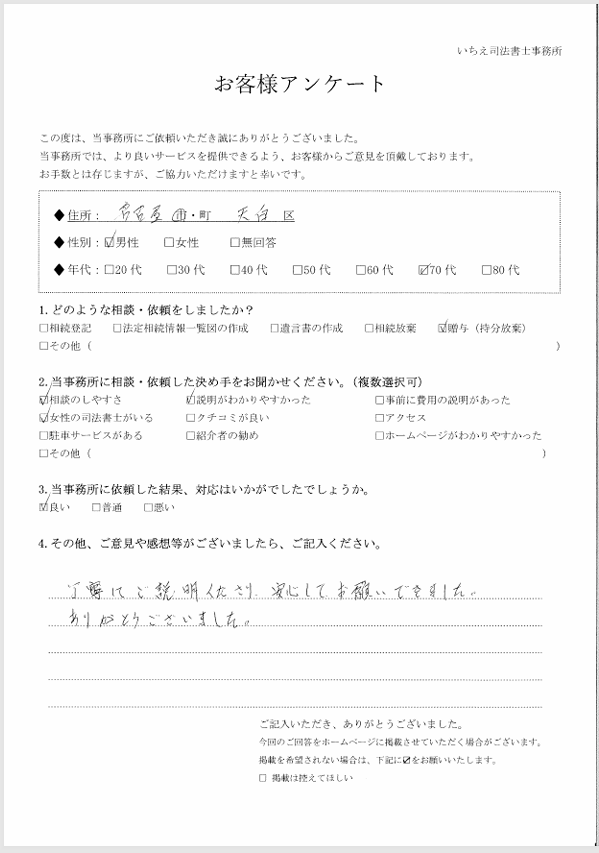 いちえ司法書士事務所
お客様アンケート
この度は、当事務所にご依頼いただき誠にありがとうございました。
当事務所では、より良いサービスを提供できるよう、お客様からご意見を頂戴しております。
お手数とは存じますが、ご協力いただけますと幸いです。
◆住所： 名古屋 市・町 天白 区
◆性別：☑男性 □女性 □無回答
◆年代：□20代 □30代 □40代 □50代 □60代 ☑70代 □80代
1. どのような相談・依頼をしましたか？
□相続登記 □法定相続情報一覧図の作成 □遺言書の作成 □相続放棄 ☑贈与（持分放棄）
□その他（ ）
2. 当事務所に相談・依頼した決め手をお聞かせください。（複数選択可）
☑相談のしやすさ ☑説明がわかりやすかった □事前に費用の説明があった
☑女性の司法書士がいる □クチコミが良い □アクセス
□駐車サービスがある □紹介者の勧め □ホームページがわかりやすかった
□その他（ ）
3. 当事務所に依頼した結果、対応はいかがでしたでしょうか。
☑良い □普通 □悪い
4. その他、ご意見や感想等がございましたら、ご記入ください。
丁寧にご説明くださり、安心してお願いできました。
ありがとうございました。
ご記入いただき、ありがとうございました。
今回のご回答をホームページに掲載させていただく場合がございます。
掲載を希望されない場合は、下記に☑をお願いいたします。
□ 掲載は控えてほしい